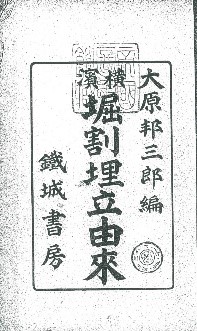 大原邦三郎編
横濱
堀割埋立由來
鐵城書房